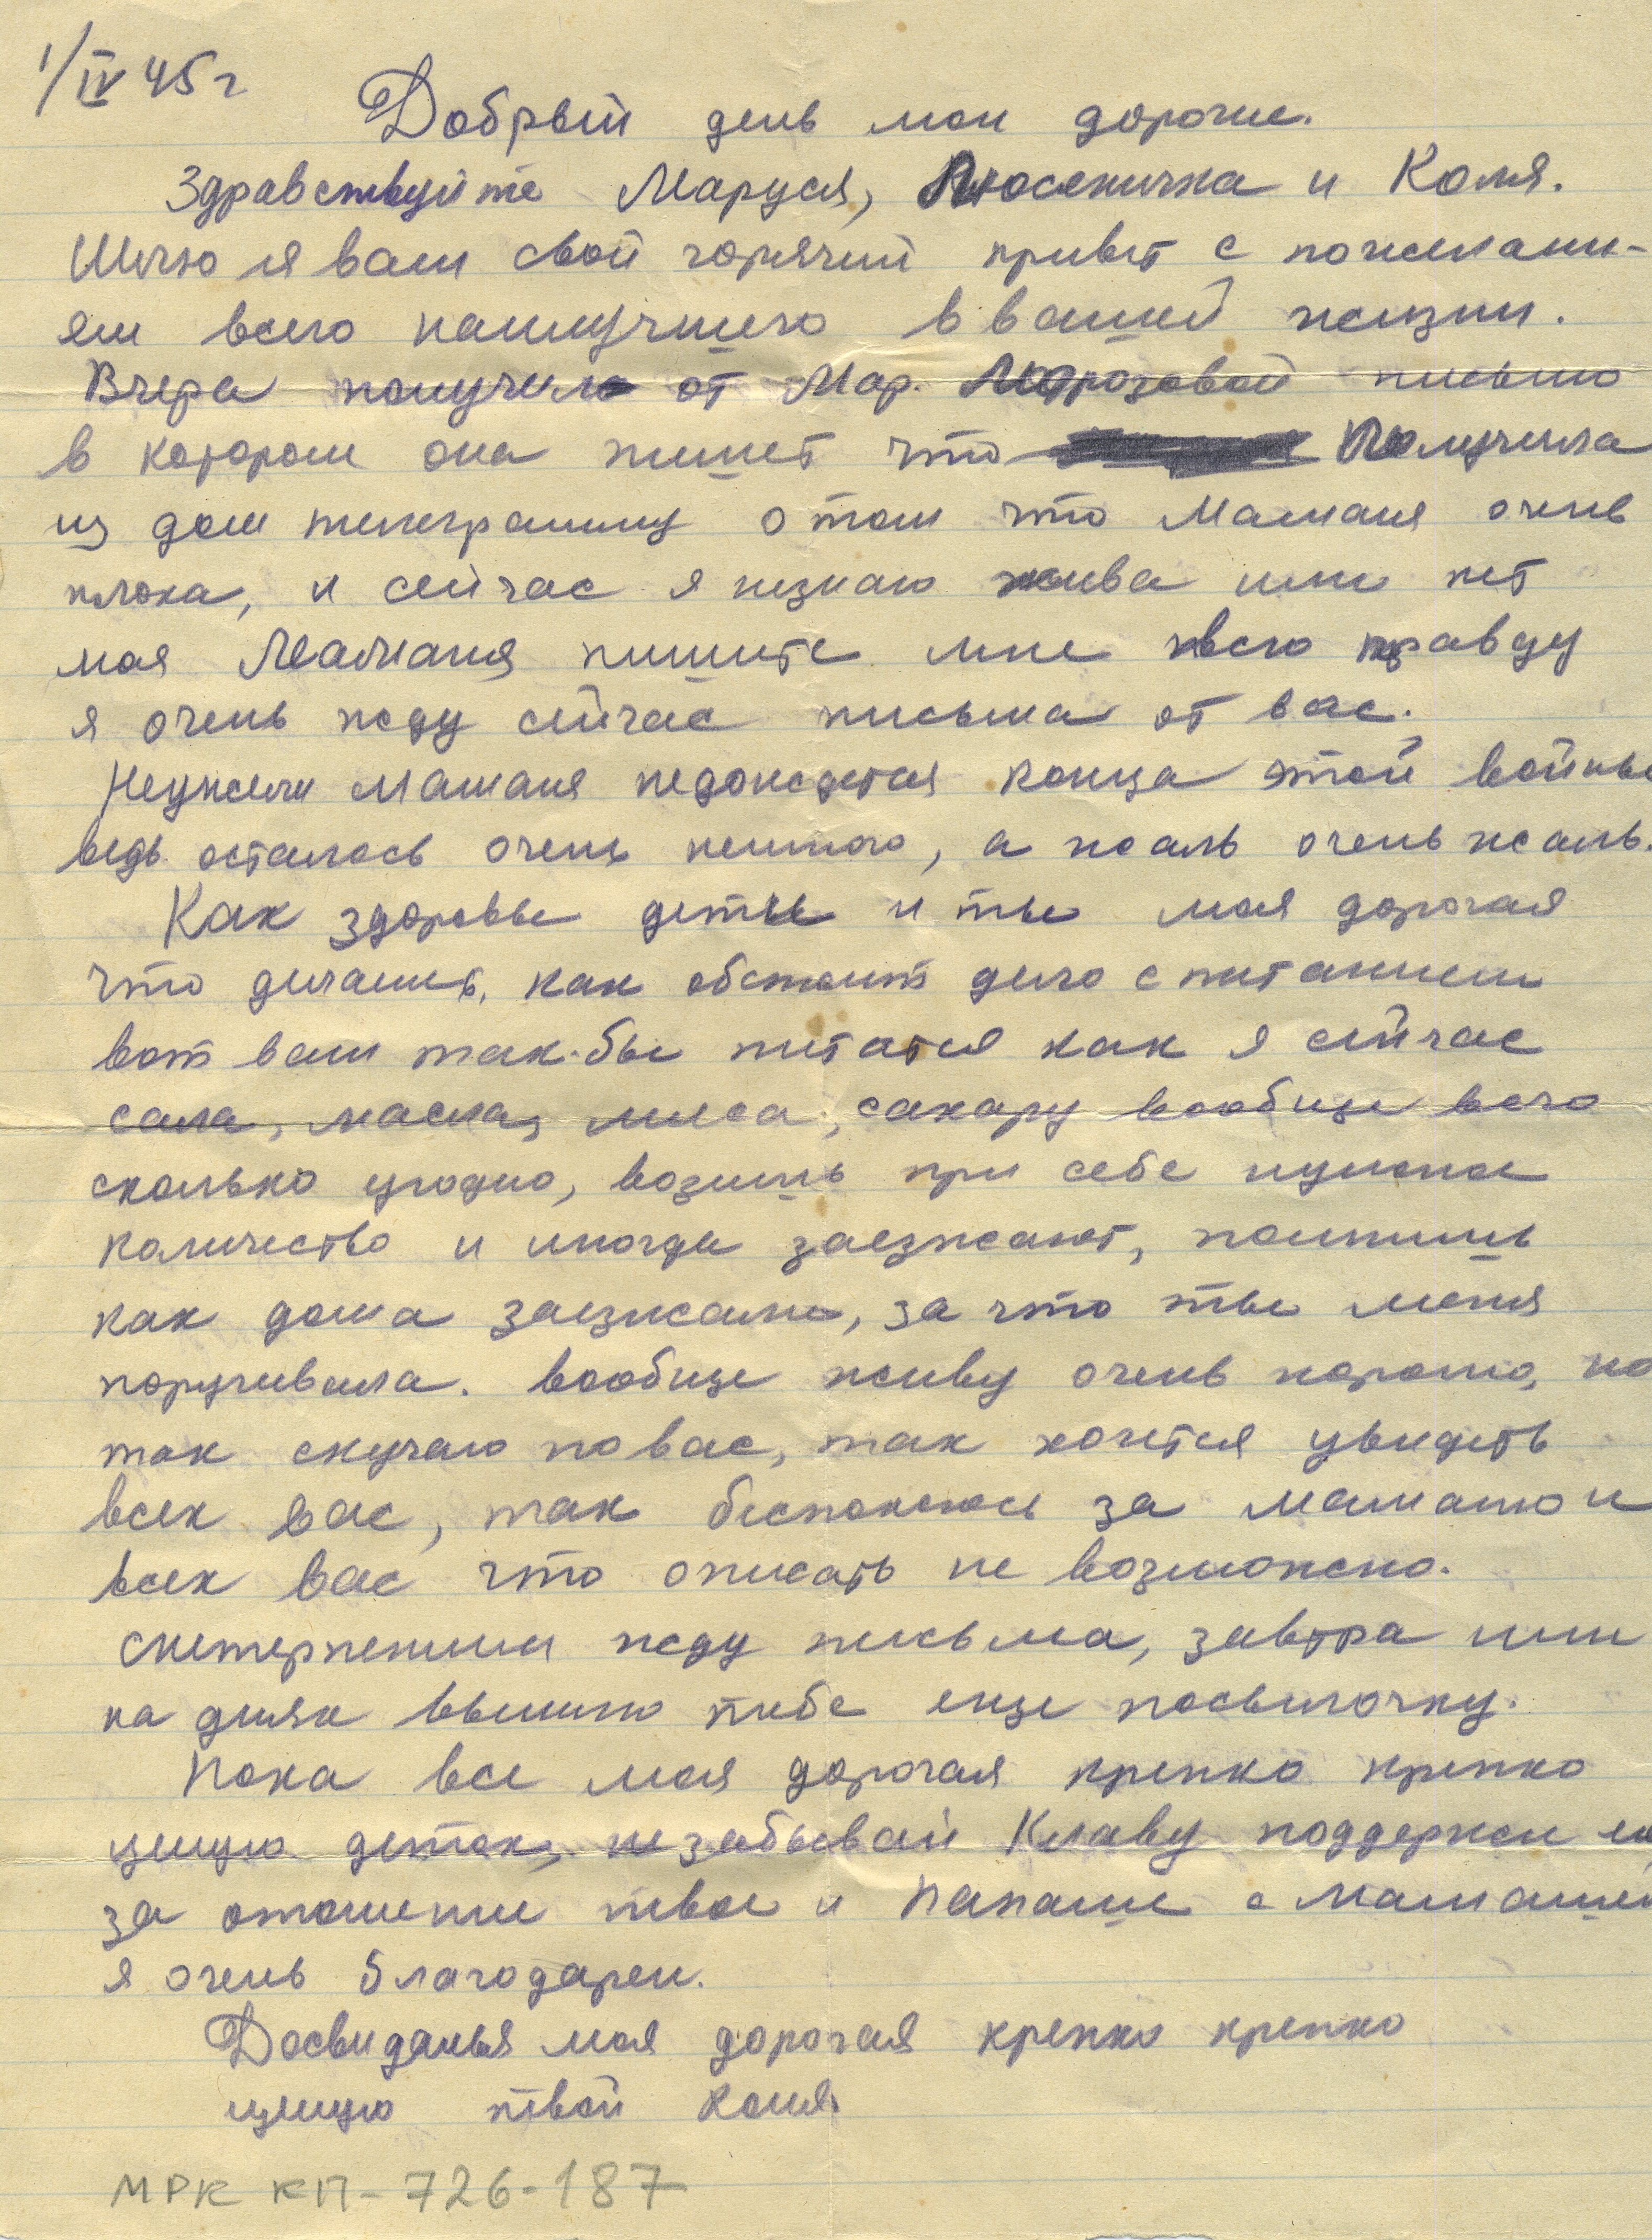 1/IV 45 г
Добрый день мои дорогие.
Здравствуйте Маруся, Люсеничка и Коля.
Шлю я вам свой горячий привет с пожелани-
ям всего наилучшего в вашей жизни.
Вчера получил от Мар. Морозовой письмо
в котором она пишет что получила
из дом телеграмму о том что Мамаша очень
плоха, и сейчас я незнаю жива или нет
моя Мамаша пишите мне всю правду
я очень жду сейчас письма от вас.
Неужели мамаша недождется конца этой войны
ведь осталось очень немного, а жаль очень жаль.
Как здоровье дети и ты моя дорогая
что делаешь, как обстоит дело с питанием
вот вам так-бы питатся как я сейчас
сала, масла, мяса, сахару вообще всего
сколько угодно, возишь при себе нужное
количество и иногда заезжают, помнишь
как дома заезжали, за что ты меня
поругивала. вообще живу очень хорошо, но
так скучаю по вас, так хочется увидеть
всех вас, так беспокоюсь за мамашу и
всех вас что описать не возможно.
снетерпением жду письма, завтра или
на днях вышлю тебе еще посылочку.
Пока все моя дорогая крепко крепко
целую деток, незабывай Клаву поддержи ее,
за отношение твое и Папаше с мамашей
я очень благодарен.
Досвиданья моя дорогая крепко крепко
целую твой Коля
МРК КП-726-187